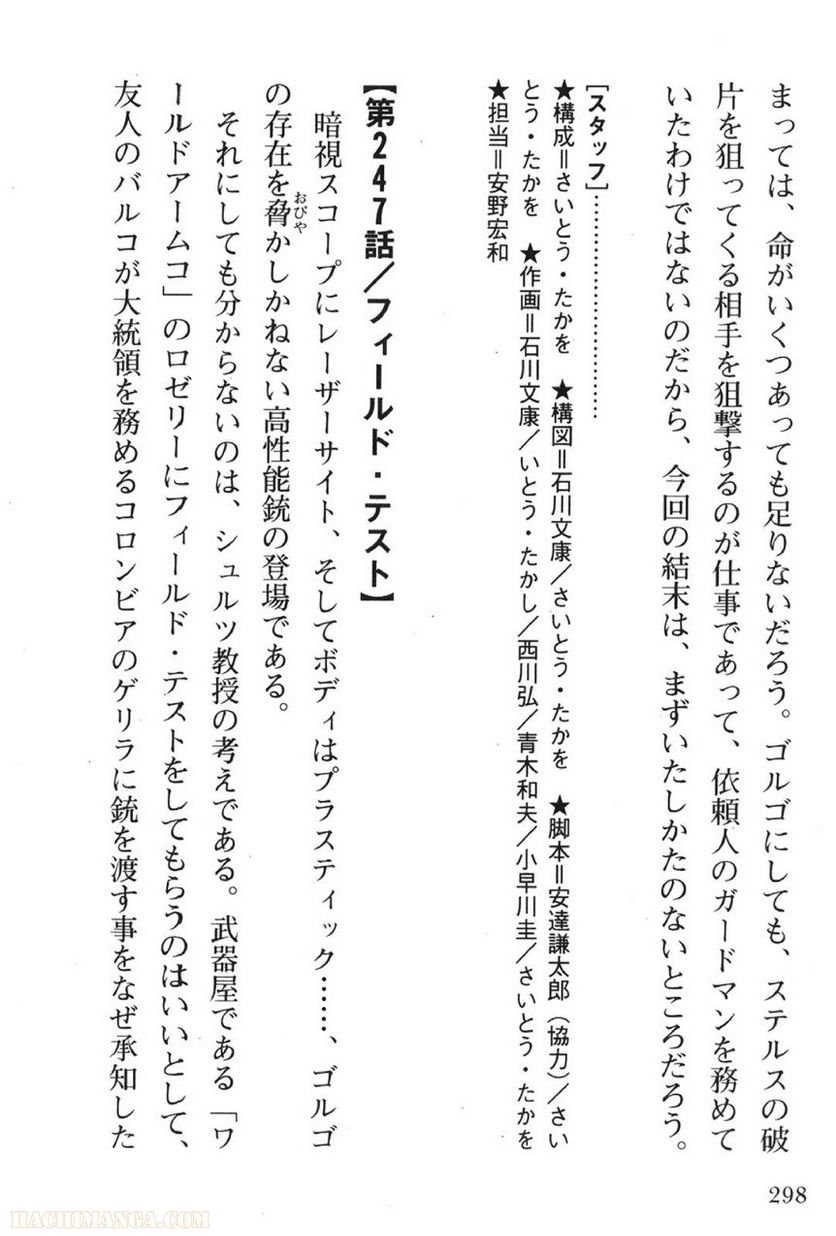 まっては、命がいくつあっても足りないだろう。ゴルゴにしても、ステルスの破
片を狙ってくる相手を狙撃するのが仕事であって、依頼人のガードマンを務めて
いたわけではないのだから、今回の結末は、まずいたしかたのないところだろう。
[スタッフ]……………………………
★構成＝さいとう・たかを　★構図＝石川文康/さいとう・たかを　★脚本＝安達謙太郎（協力）/さい
とう・たかを　★作画＝石川文康/いとう・たかし/西川弘/青木和夫/小早川圭/さいとう・たかを
★担当＝安野宏和
【第247話/フィールド・テスト】
暗視スコープにレーザーサイト、そしてボディはプラスティック……、ゴルゴ
の存在を脅かしかねない高性能銃の登場である。
おびや
それにしても分からないのは、シュルツ教授の考えである。武器屋である「ワ
ールドアームコ」のロゼリーにフィールド・テストをしてもらうのはいいとして、
友人のバルコが大統領を務めるコロンビアのゲリラに銃を渡す事をなぜ承知した
298
HACHIMANGA.COM